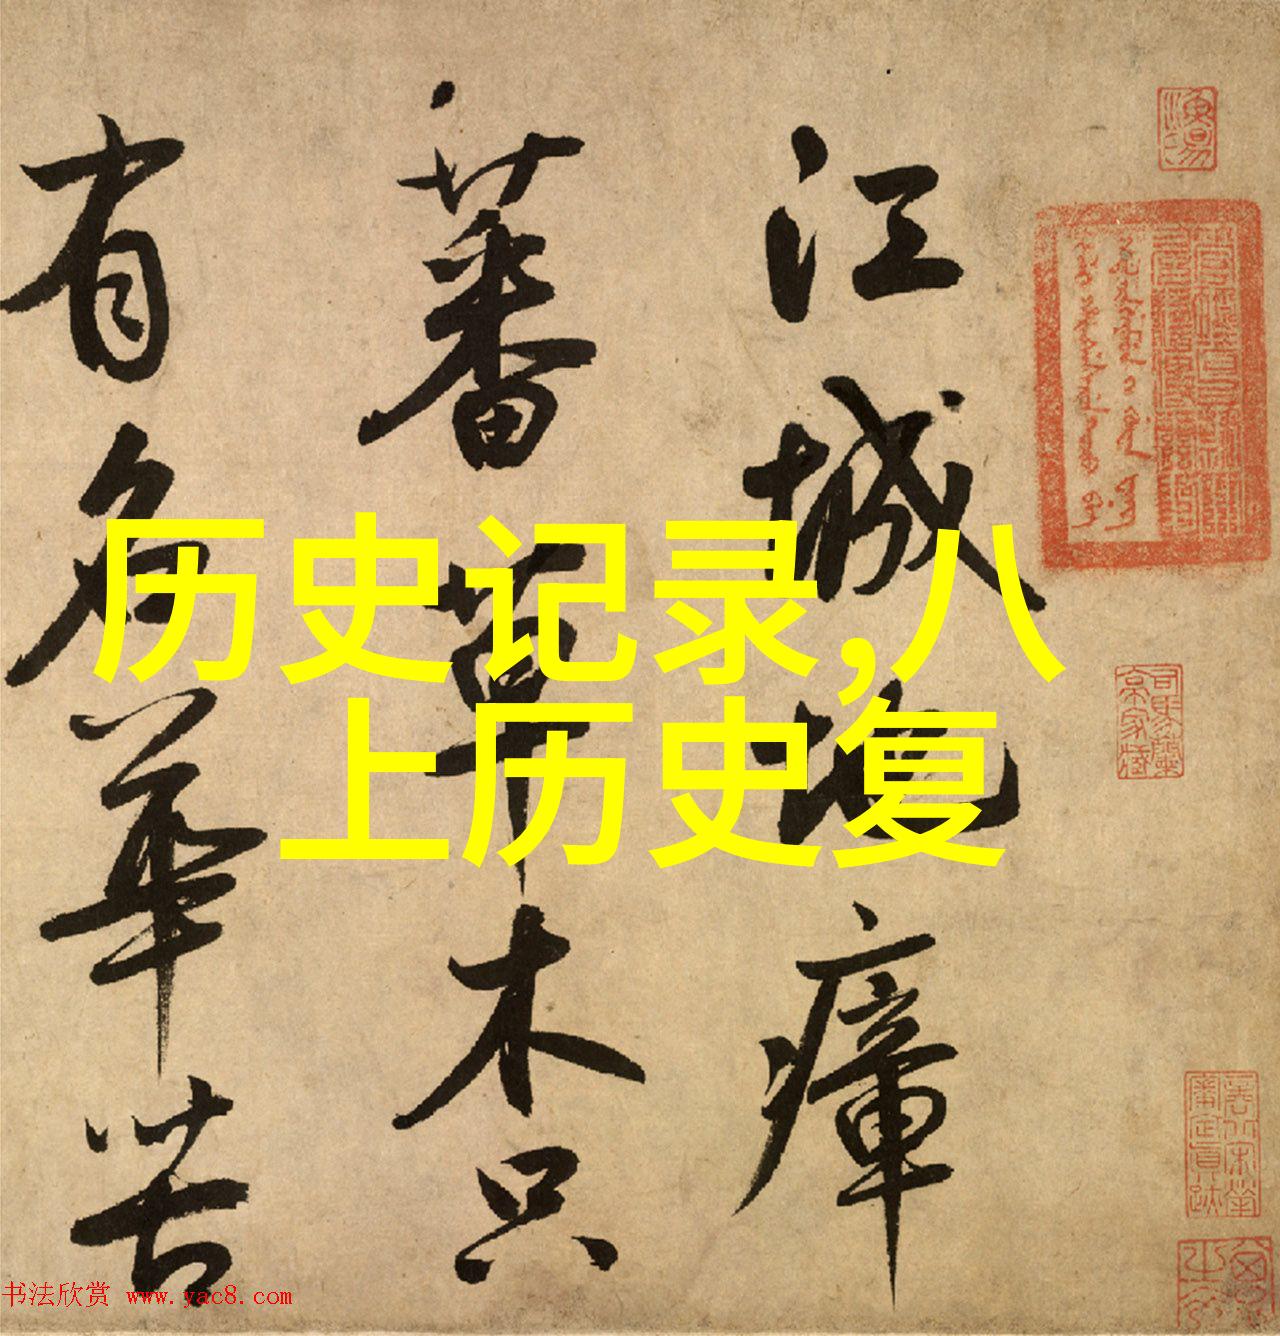 江城地瘴
蕃草木只
有名華苦
历史记录,八
上历史复
书法欣赏 www.yac8.com